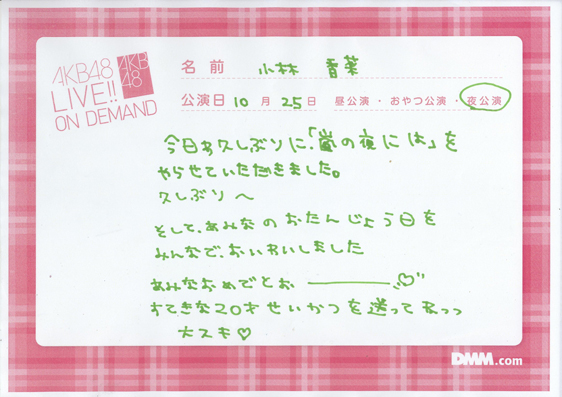 AKB48
LIVE!!
ON DEMAND
AKB
48
名前 小林 香菜
公演日 10 月 25 日 昼公演・おやつ公演・夜公演
今日お久しぶりに、「嵐の夜には」を
やらせていただきました。
久しぶり〜
そして、あみなのおたんじょう日を
みんなで、おいわいしました
あみなおめでとお———♡"
すてきな20才せいかつを送ってねっっ
大スキ♡
DMM.com